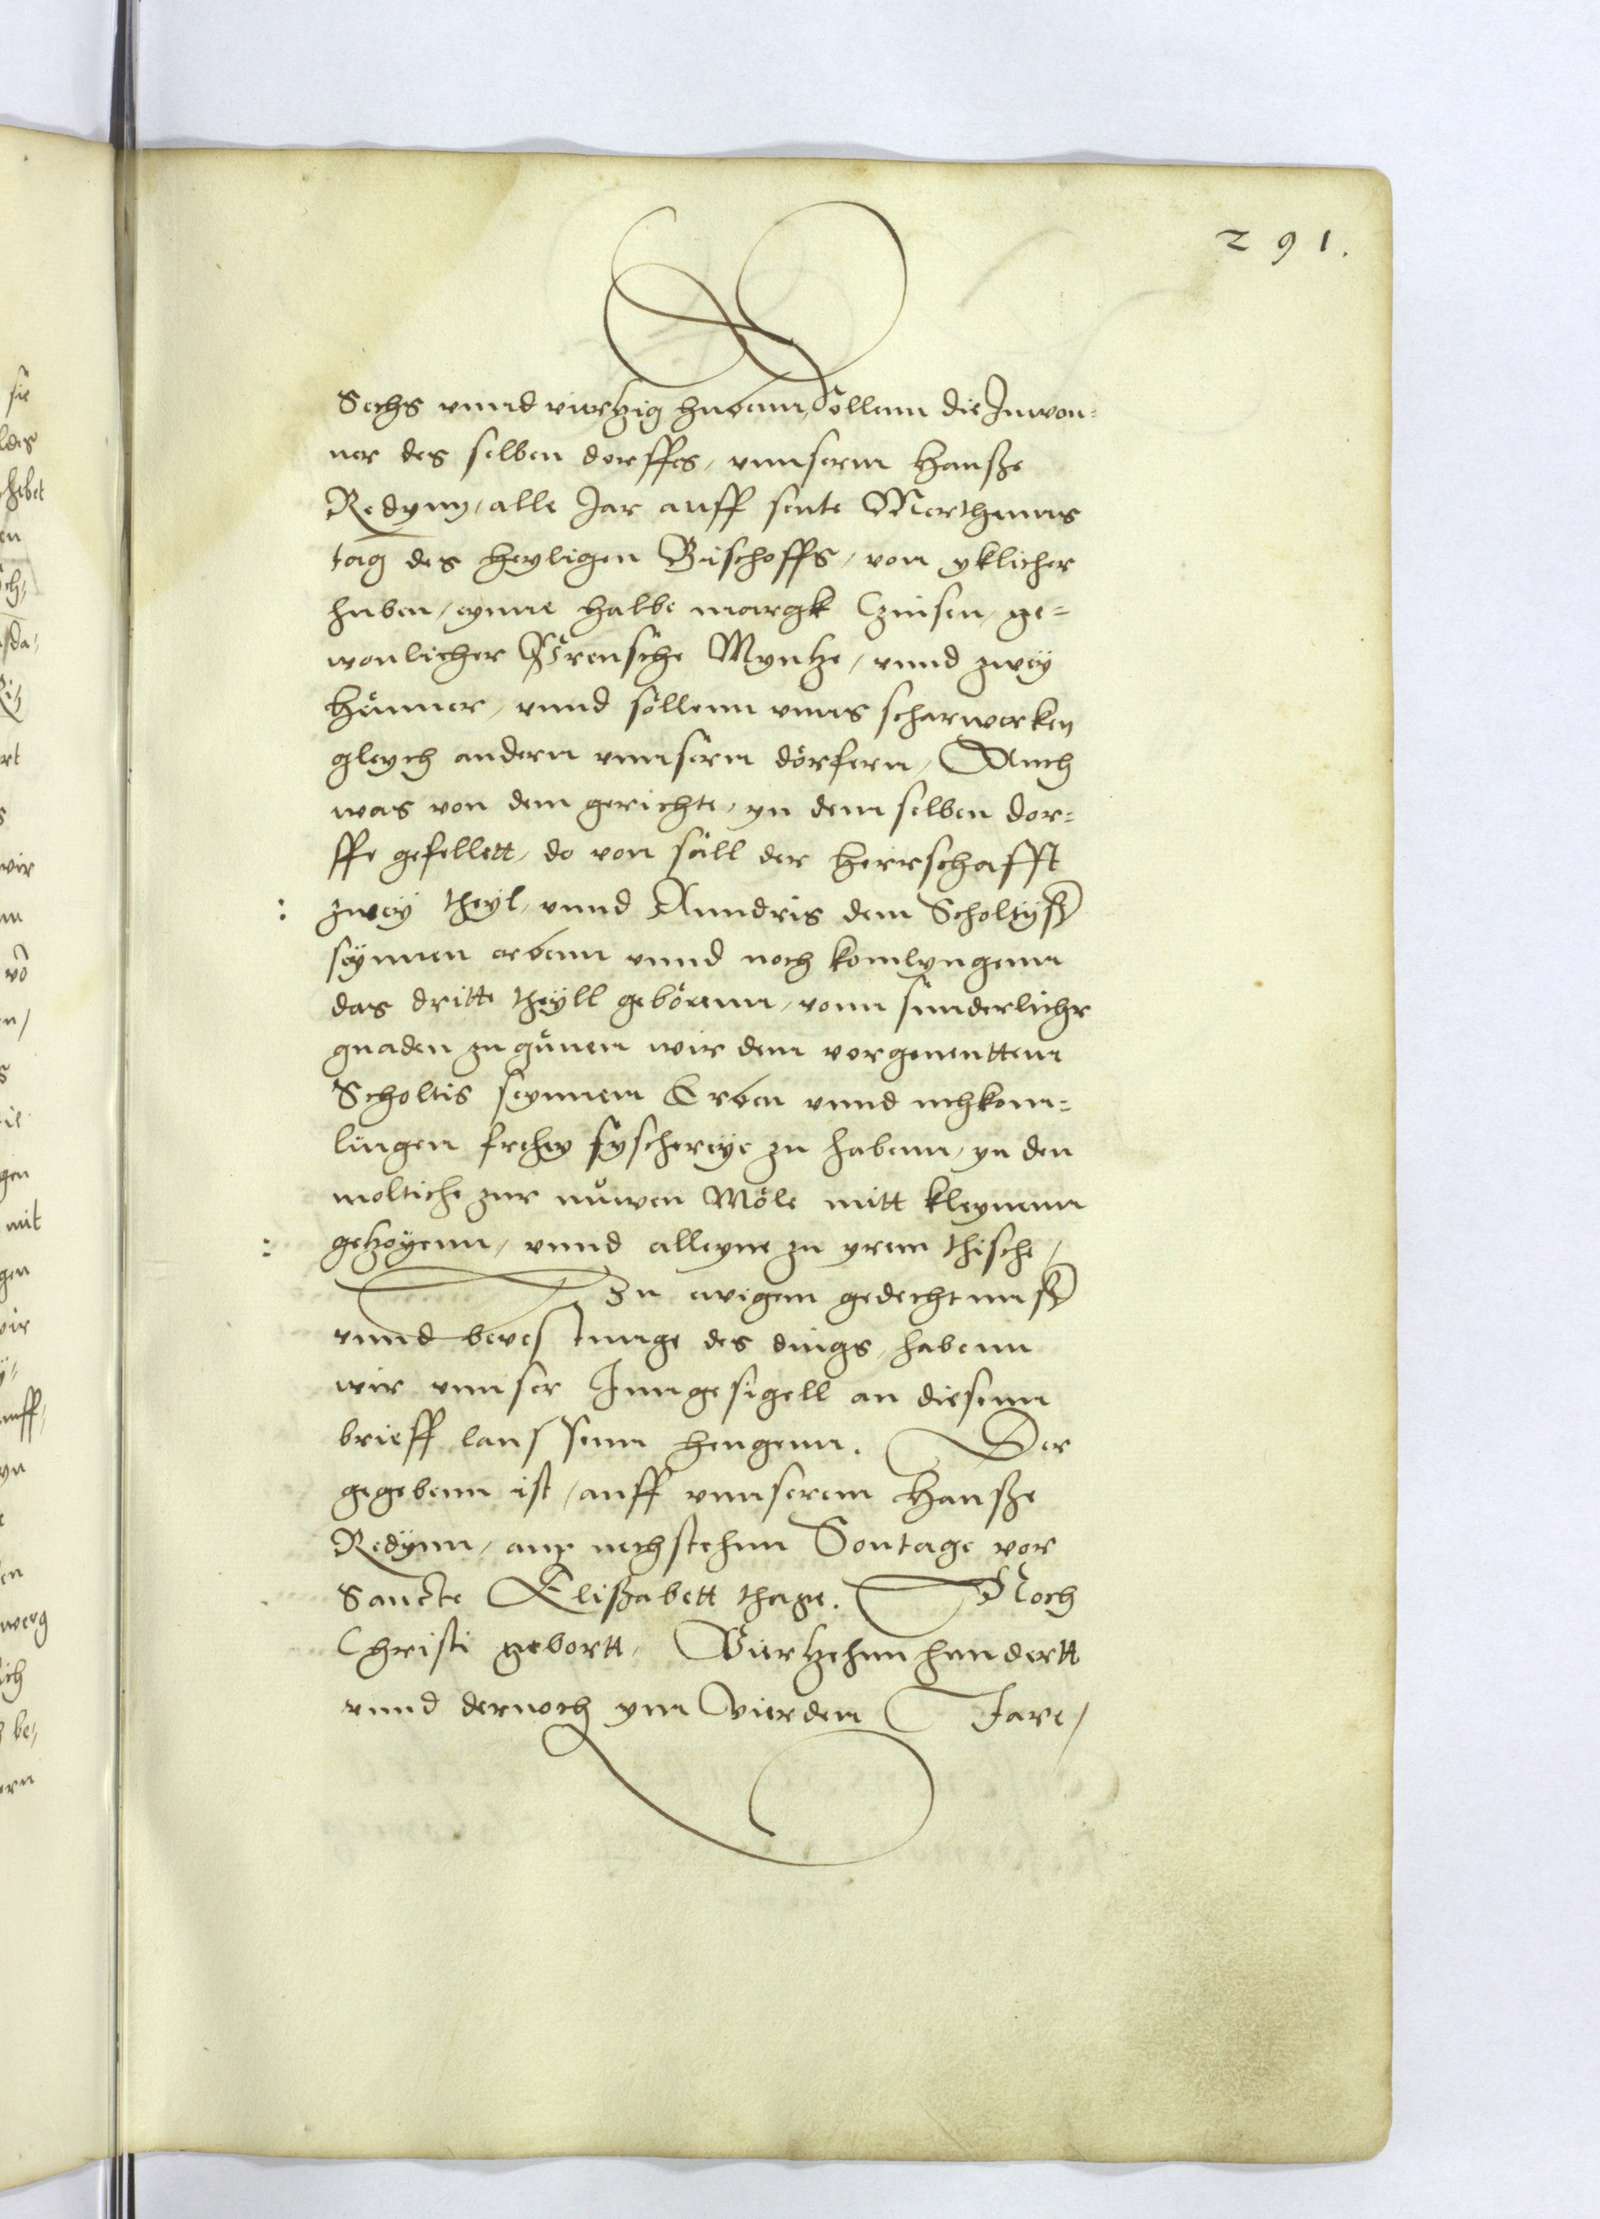 291.
Sechs vnnd viertzig hubenn, söllenn die Inwon=
ner des selben dorffes, vnnserm Hauße
Redynn, alle Jar auff sente Merthenns
tag des heyligen Bischoffs, von yklicher
huben, eynne halbe margk Czinsen, ge=
wonlicher Prewsche Myntze, vnnd zwey
Hennner, vnnd söllenn vnns scharwerken
gleych andern vnnsern dörfern, Auch
was von dem gerichte, yn dem selben dor=
ffe gefellett, do von säll der herrschafft
: zwey theyl, vnnd Anndris dem Scholtyß
seynnen erbenn vnnd noch komlyngenn
das dritte theyll gebörenn, vonn sunderlicher
gnaden zu günnen wir dem vorgenentten
Scholtis seynnen Erben vnnd nchkom=
lingen frehy fyschereye zu habenn, yn den
moltiche zur nuwen Möle mitt kleynenn
: getzoyenn, vnnd alleyne zu yrem thische,
Zu ewigenn gedechtnnß
vnnd bevestunge des dings, habenn
wir vnnser Inngesigell an diesenn
brieff lanssenn hengenn. Der
gegebenn ist, auff vnnserem Hauße
Redynn, am nechstehnn Sontage vor
Sancte Elißabett thage. Noch
Christi gebortt, Viertzehnn hundertt
vnnd dernoch ynn Vierden Jare,
sie
wir
mit
gen
wir